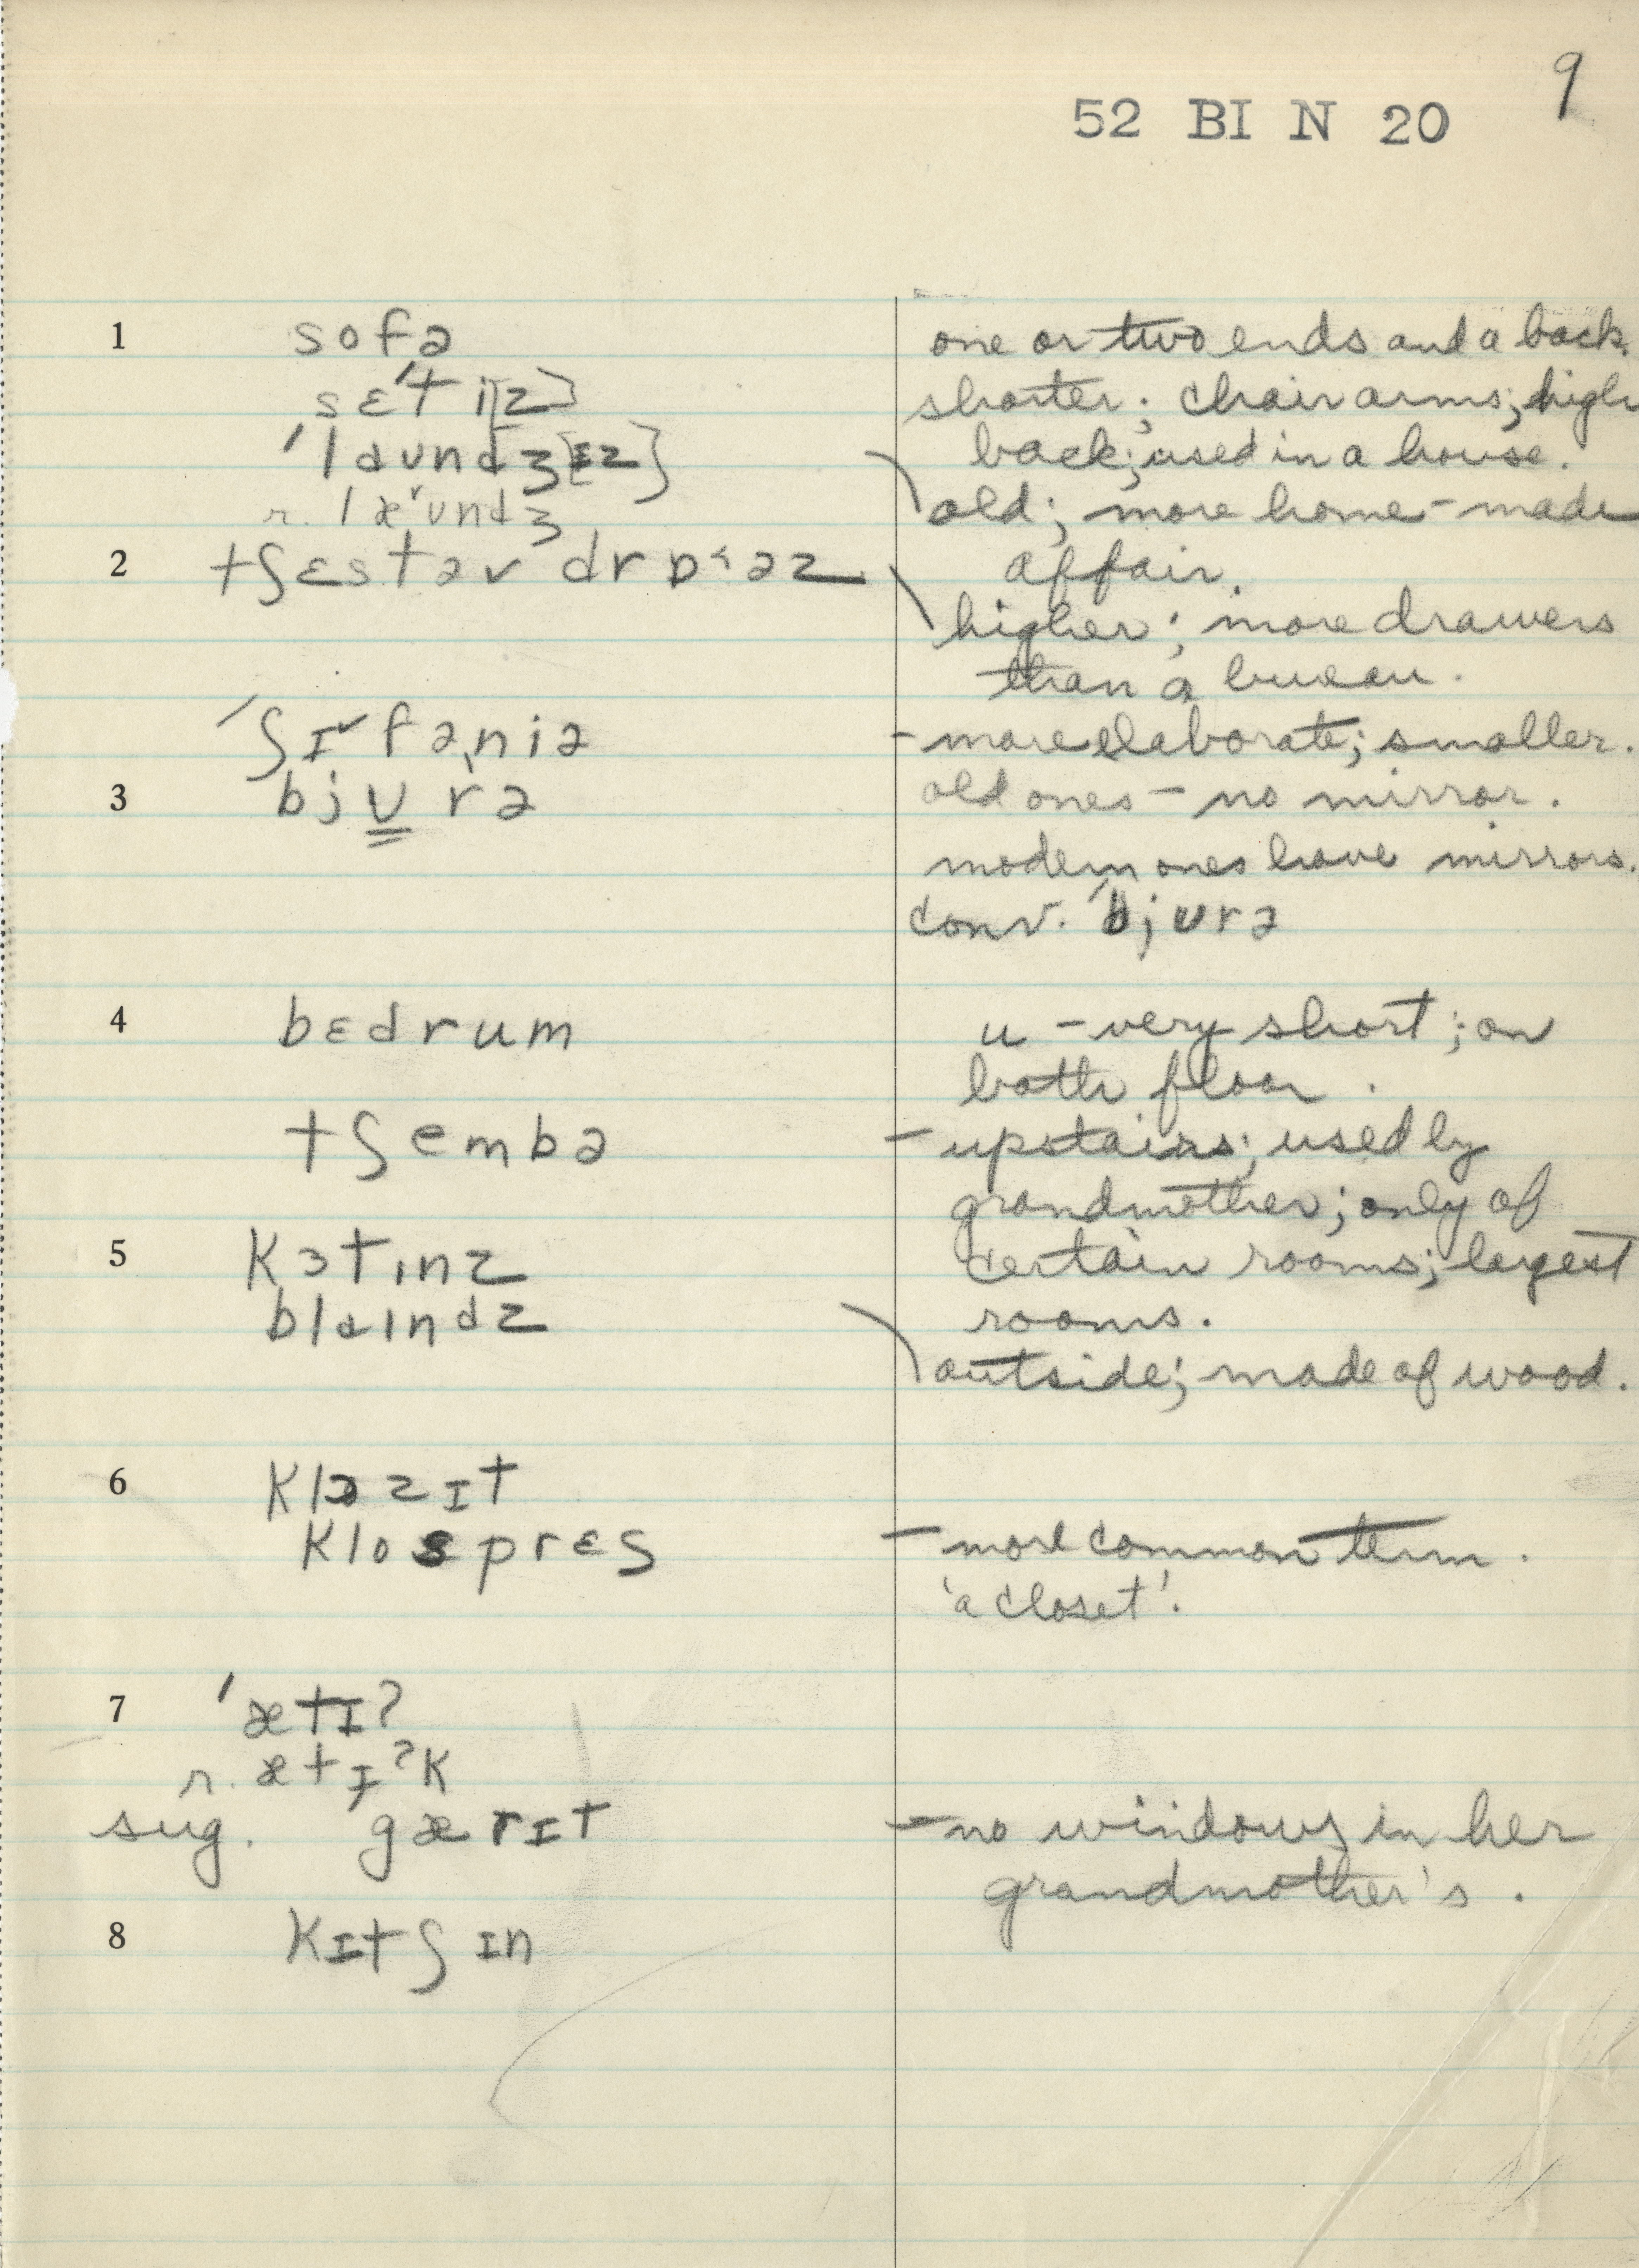 9
52 BI N 20
1 sofə one or two ends and a back.
sɛˈti[z] shorter; chair arms; high
ˈlaʊndʒ[ɪz] back; used in a house.
r. læ˅ʊndʒ old; more home-made
2 tʃɛst əv drɒ˂əz affair.
higher; more drawers
than a bureau.
ˈʃɪ˅fəniə - more elaborate; smaller.
3 bjʊrə old ones - no mirror.
modern ones have mirrors.
conv. ˈbjʊrə
4 bɛdrum u - very short; on
both floor.
tʃembə - upstairs; used by
grandmother; only of
5 kɜtɪnz certain rooms; largest
blaɪndz rooms.
outside; made of wood.
6 klɒzɪt
klospres - more common term.
'a closet'.
7 ˈætɪʔ
r. ætɪʔk
sug. ˈgærɪt - no windows in her
grandmother's.
8 kɪtʃɪn